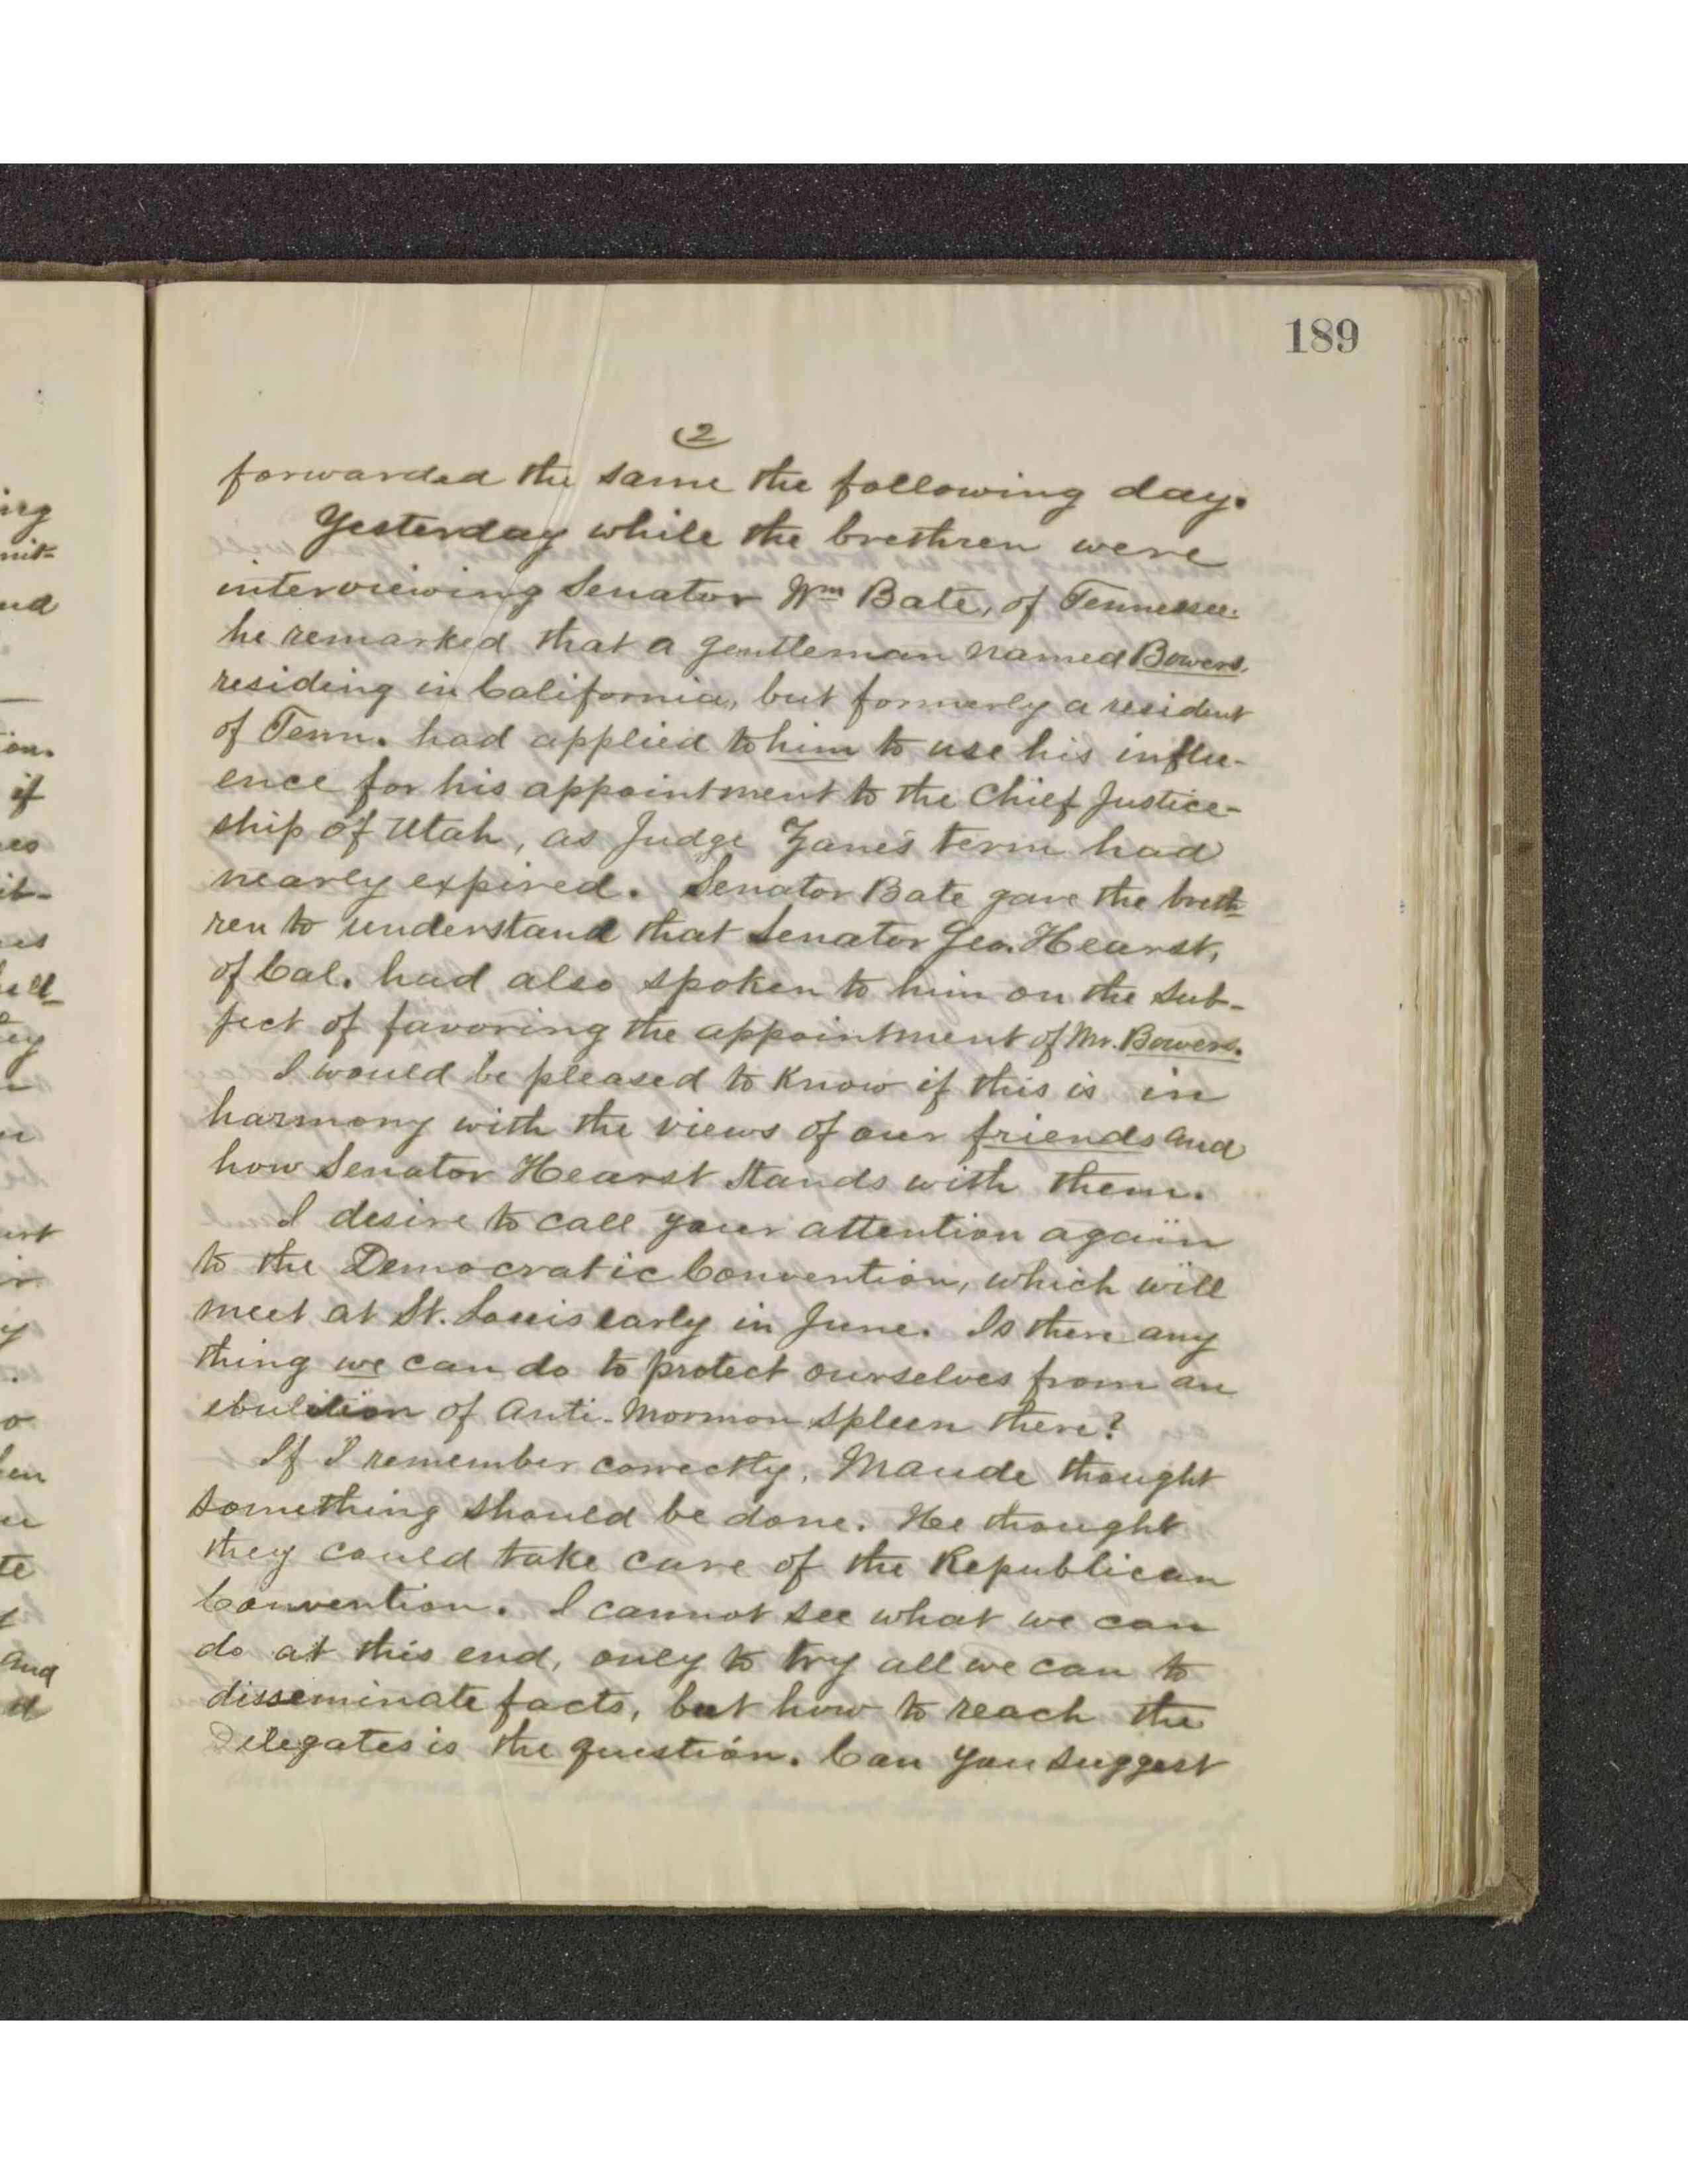 189
2
forwarded the same the following day.
Yesterday while the brethren were
interviewing Senator Wm Bate, of Tennessee.
he remarked that a gentleman named Bowers,
residing in California, but formerly a resident
of Tenn. had applied to him to use his influ-
ence for his appointment to the Chief Justice-
ship of Utah, as Judge Zane's term had
nearly expired. Senator Bate gave the breth-
ren to understand that Senator Geo. Hearst,
of Cal. had also spoken to him on the sub-
ject of favoring the appointment of Mr. Bowers.
I would be pleased to know if this is in
harmony with the views of our friends and
how Senator Hearst stands with them.
I desire to call your attention again
to the Democratic Convention, which will
meet at St. Louis early in June. Is there any
thing we can do to protect ourselves from an
ebulition of Anti-Mormon spleen there?
If I remember correctly, Maude thought
something should be done. He thought
they could take care of the Republican
Convention. I cannot see what we can
do at this end, only to try all we can to
disseminate facts, but how to reach the
Delegates is the question. Can you suggest